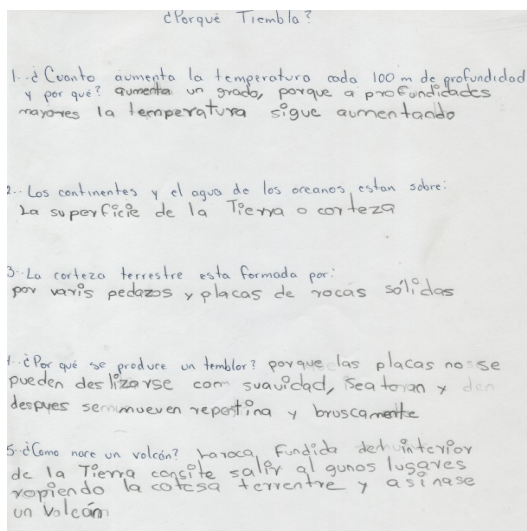 ¿Porqué Tiembla?
1.-¿Cuanto aumenta la temperatura cada 100 m de profundidad
y por qué? aumenta un grado, porque a profundidades
mayores la temperatura sigue aumentando
2.- Los continentes y el agua de los oceanos estan sobre:
La superficie de la Tierra o corteza
3.-La corteza terrestre esta formada por:
por varis pedazos y placas de rocas sólidas
4.-¿Por qué se produce un temblor? porque las placas no se
pueden deslizarse com suavidad, Sea toran y
despues semmueven repentina y bruscamente
5.-¿Como nace un volcán? La roca, fundida del interior
de la Tierra consite salir al gunos lugares
ropiendo la cotesa terrentre y asi nase
un Volcán